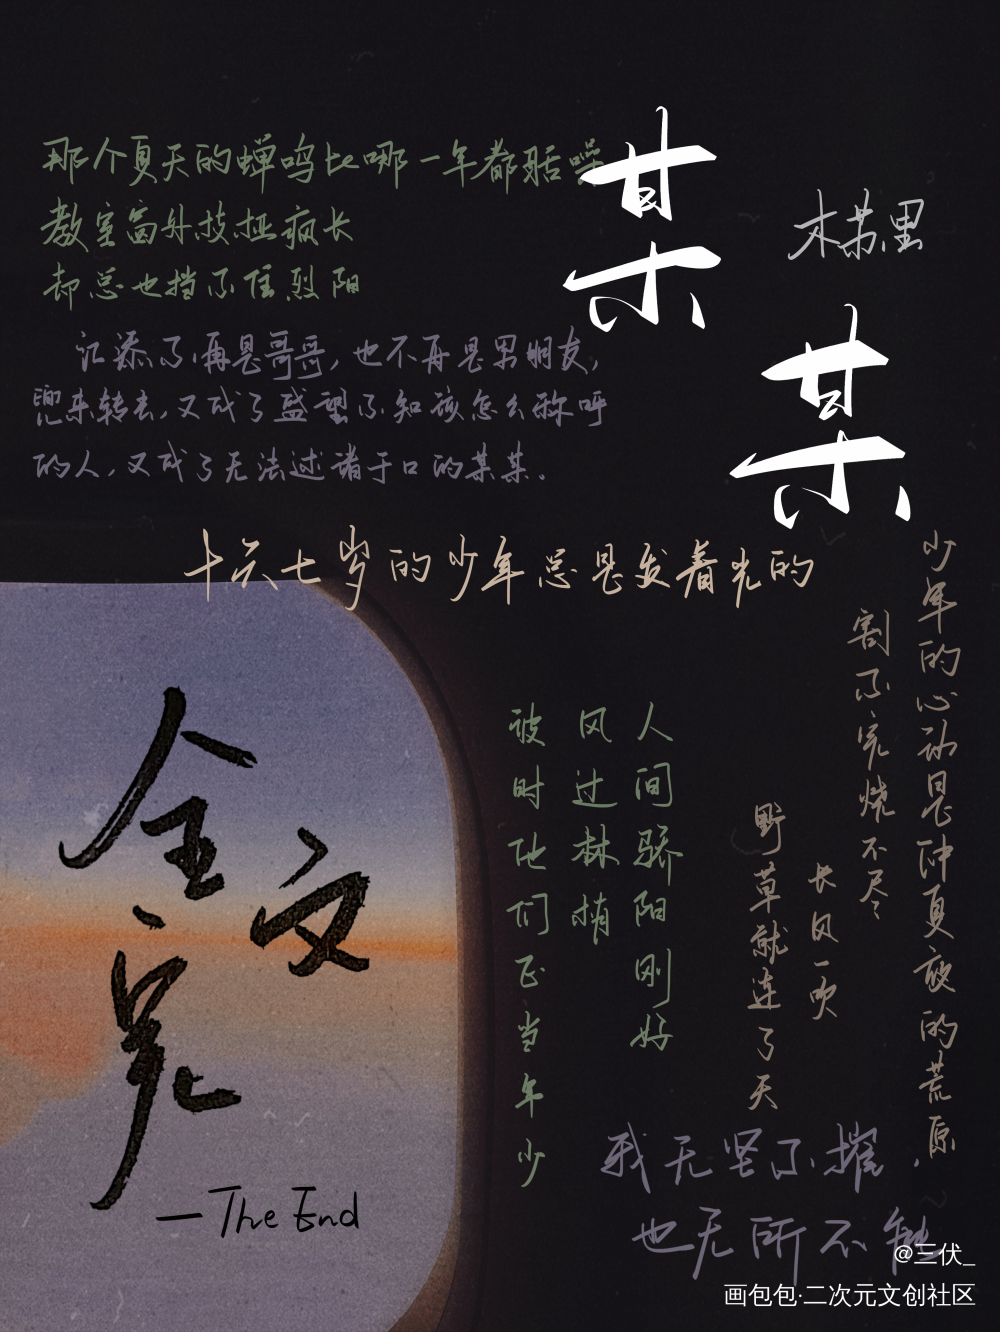 那个夏天的蝉鸣比哪一年都聒噪
教室窗外枝桠疯长
却总也挡不住烈阳
某某
木苏里
江添不再是哥哥，也不再是男朋友，
兜来转去，又成了盛望不知该怎么称呼
的人，又成了无法述诸于口的某某。
十六七岁的少年总是发着光的
少年的心动是仲夏夜的荒原
割不完烧不尽
长风一吹
野草就连了天
人间骄阳刚好
风过林梢
彼时他们正当年少
我无坚不摧，
也无所不能
全文完
—The End
@三伏_
画包包·二次元文创社区